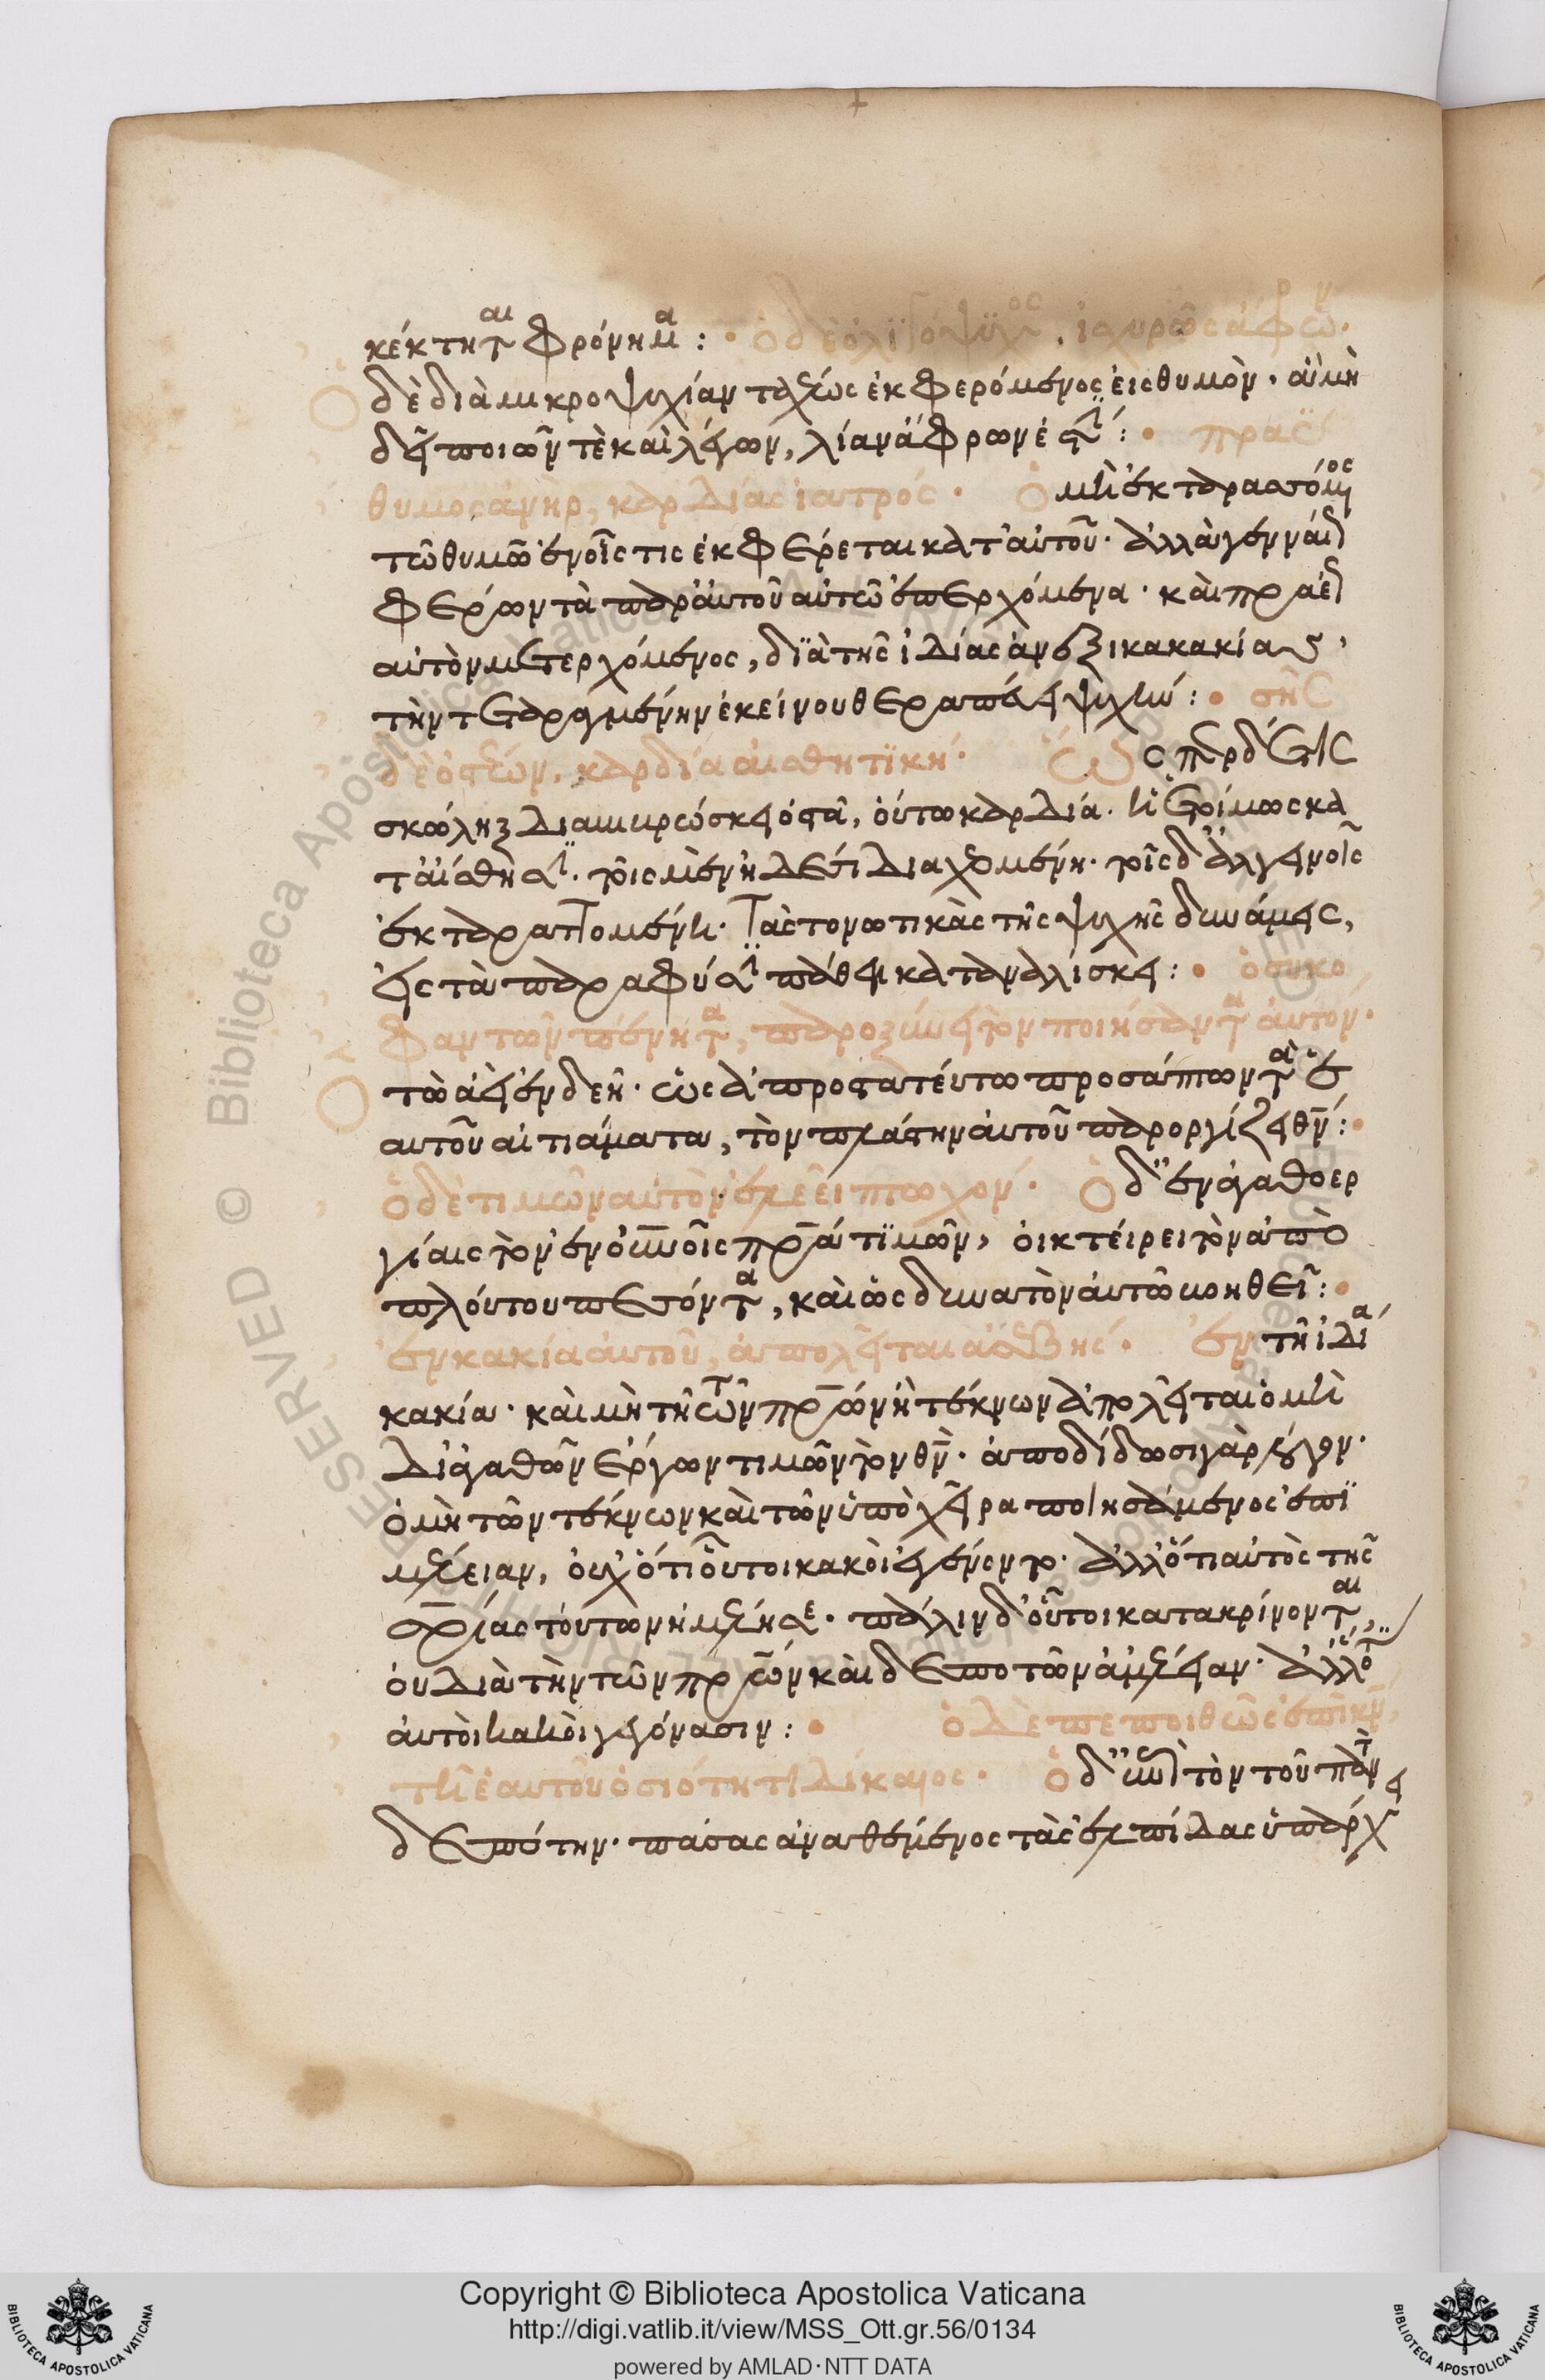 κέκτηται φρόνημα : · ὁ δὲ ὀλιγόψυχος, ἰσχυρῶς ἄφρων·
Ὁ δὲ διὰ μικροψυχίαν ταχέως ἐκφερόμενος εἰς θυμὸν· ἃ μὴ
δεῖ ποιῶν τὲ καὶ λέγων, λίαν ἄφρων ἐστί : · πραΰ
θυμος ἀνὴρ, καρδίας ἰατρός · Ὁ μὴ ἐκταρασσόμενος
τῶ θυμῶ ἐν οἷς τις ἐκφέρεται κατ' αὐτοῦ · ἀλλὰ γενναί
φέρων τὰ παρ' αὐτοῦ αὐτῶ ἐπερχόμενα · καὶ πρ
αὐτὸν μετερχόμενος, διὰ τῆς ἰδίας ἀνεξικακακίας,
τὴν τεταραγμένην ἐκείνου θεραπεύει ψυχήν : · σὴς
δὲ ὀστέων, καρδία αἰσθητικὴ · Ὥς περ δὲ σὴς
σκώληξ διατιτρώσκει ὀστᾶ, οὕτω καρδία. ἡ ἑτοίμως κα
τ' αἴσθησιν. τοῖς μὲν ἡδέσι διαχεομένη· τοῖς δ' ἀλγεινοῖς
ἐκταραττομένη · Τὰς τονωτικὰς τῆς ψυχῆς δυνάμεις,
εἰς τὰ παρὰ φύσιν πάθη καταναλίσκει : · ὁ συκο
φαντῶν πένητα, παροξύνει τὸν ποιήσαντα αὐτόν ·
Ὁ τῶ ἀεὶ ἐνδεεῖ · ὡς ἀπροστατεύτω προσάπτων τὰ ἐ
αυτοῦ αἰτιάματα, τὸν πλάστην αὐτοῦ παροργίζει θν :·
ὁ δὲ τιμῶν αὐτὸν ἐλεεῖ πτωχόν · Ὁ δ' ἐν ἀγαθοερ
γίαις τὸν ἐν οὐνοῖς πρα τιμῶν, οἰκτείρει τὸν ἀπὸ
πλούτου πεσόντα, καὶ ὡς δυνατὸν αὐτῶ βοηθεῖ :·
ἐν κακία αὐτοῦ, ἀπολεῖται ἀσεβής · ἐν τῆ ἰδία
κακία · καὶ μὴ τῆ τῶν πρων ἢ τέκνων ἀπολεῖται ὁ μὴ
δι' ἀγαθῶν ἔργων τιμῶν τὸν θν · ἀποδίδωσι γὰρ λόγον·
ὁ μὴ τῶν τέκνων καὶ τῶν ὑπὸ χεῖρα ποιησάμενος ἐπι
μέλειαν, οὐχ' ὅτι οὗτοι κακοὶ ἐγένοντο · ἀλλ' ὅτι αὐτὸς τῆς
σρίας τούτων ἠμέλησε · πάλιν δ' οὗτοι κατακρίνονται,
οὐ διὰ τὴν τῶν πρων καὶ δεσποτῶν ἀμέλειαν · ἀλλ' ὅτι
αὐτοὶ κακοὶ γεγόνασιν : · ὁ δὲ πεποιθὼς ἐπὶ κν,
τῆ ἑαυτοῦ ὁσιότητι δίκαιος · Ὁ δ' ἐπὶ τὸν τοῦ παντὸς
δεσπότην · πάσας ἀναθέμενος τὰς ἐλπίδας ὑπάρχει